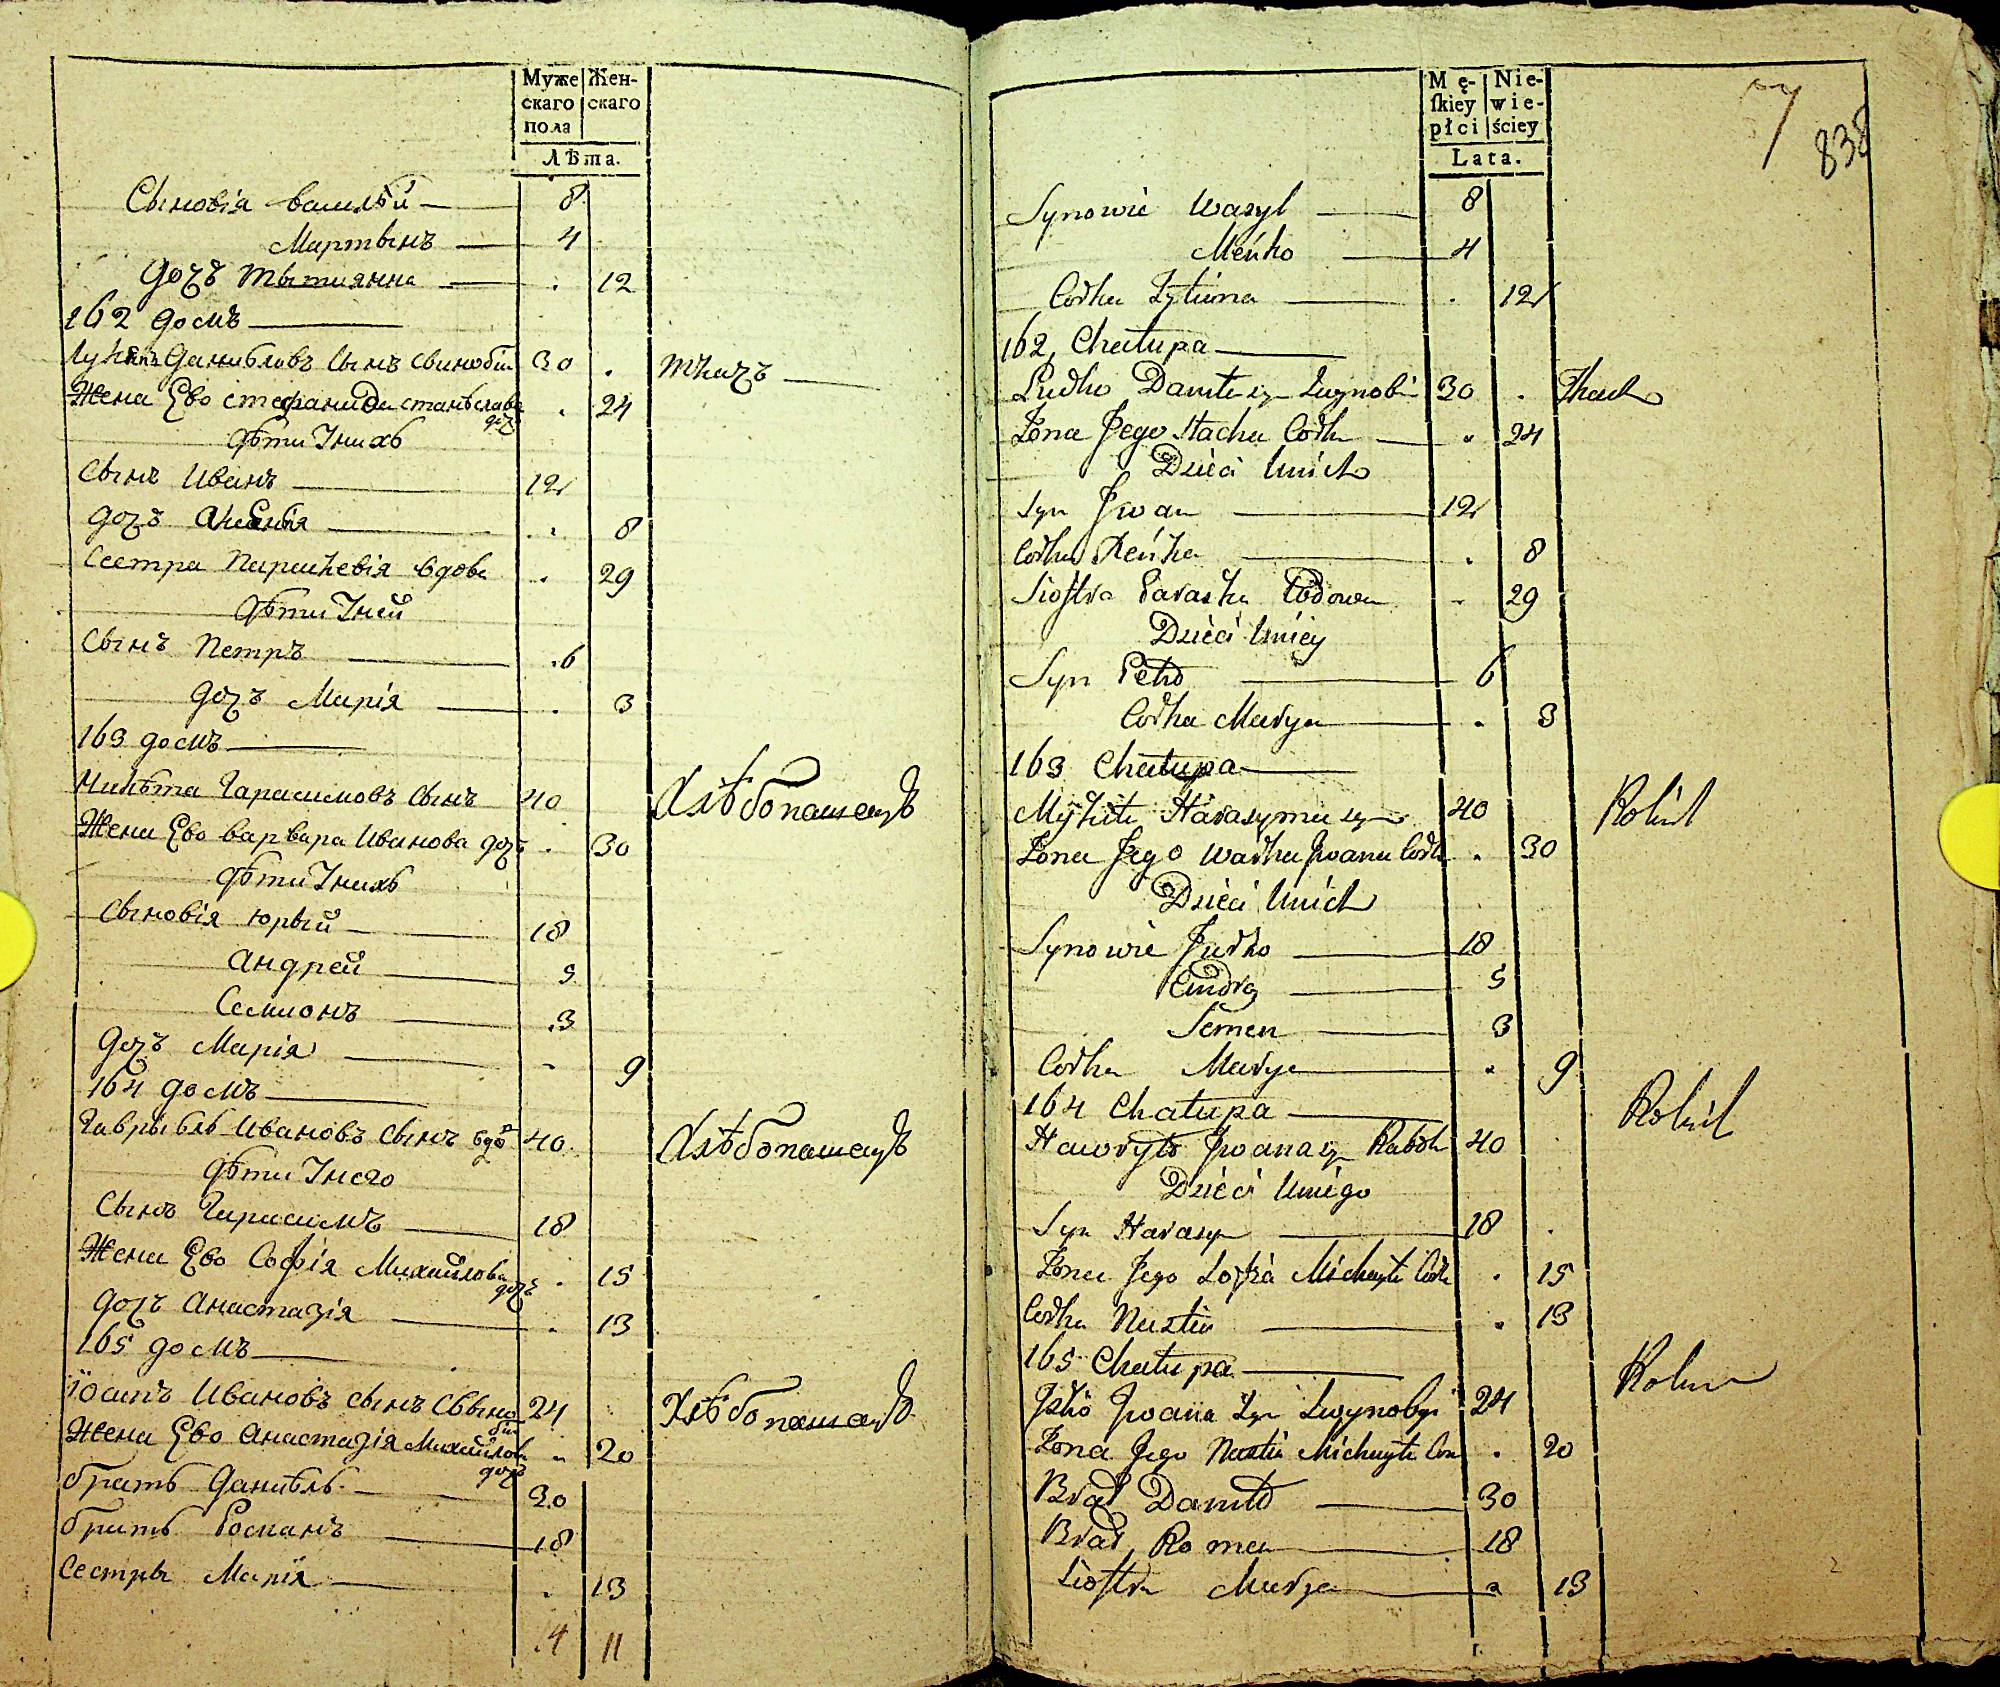 Муже Жен-
скаго скаго
пола
Лѣта.
Сыновія василѣй 8
Мартынъ 4
дочъ Тытиянна 12
162 домъ
Данибловъ Сынъ 30 ткачъ
Жена Ево стефанида станѣслава дочъ 24
дѣти Унихъ
Сынъ Иванъ 12
дочъ 8
Сестра Парашкевія вдова 29
дѣти Уней
Сынъ Петръ 6
дочъ Марія 3
163 домъ
Никѣта Гарасимовъ Сынъ 40 Хлѣбопашецъ
Жена Ево варвара Иванова дочъ 30
дѣти Унихъ
Сыновія юрый 18
Андрей 5
Семионъ 3
дочъ Марія 9
164 домъ
Гаврыѣлъ Ивановъ Сынъ вдо 40 Хлѣбопашецъ
дѣти Унего
Сынъ Гарасимъ 18
Жена Ево Софія Михайлова дочъ 15
дочъ Анастазія 13
165 домъ
Іосипъ Ивановъ сынъ 24 Хлѣбопашецъ
Жена Ево Анастазія Михайлова дочъ 20
братъ Даниѣлъ 30
братъ Романъ 18
Сестра Марія 13
14 11
Mę- Nie-
ſkiey wie-
płci ściey
Lata.
838
Synowie Wasyl 8
Meńko 4
Corka Tytiana 12
162 Chałupa
Danila syn 30 Tkacz
Żona Jego Stacha Corka 24
Dzieci Unich
Syn Jwan 12
Corka 8
Siostra Paraska Wdowa 29
Dzieci Uniey
Syn Petro 6
Corka Marya 3
163 Chałupa
Mykita Harasyma syn 40 Rolnik
Żona Jego Warka Jwana Corka 30
Dzieci Unich
Synowie Jurko 18
Andry 5
Semen 3
Corka Marya 9
164 Chałupa Rolnik
Hawryło Jwana syn 40
Dzieci Uniego
Syn Harasym 18
Żona Jego Zofia Michayła Corka 15
Corka Nastia 13
165 Chałupa
Jwana Syn 24 Rolnik
Żona Jego Nastia Michayła Cor 20
Brat Daniło 30
Brat Roman 18
Siostra Marya 13